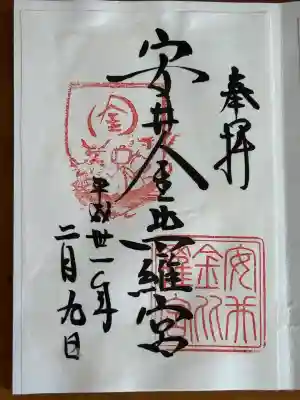 奉拝
安井金比羅宮
平成卅一年
二月九日
金
安井
金比
羅宮